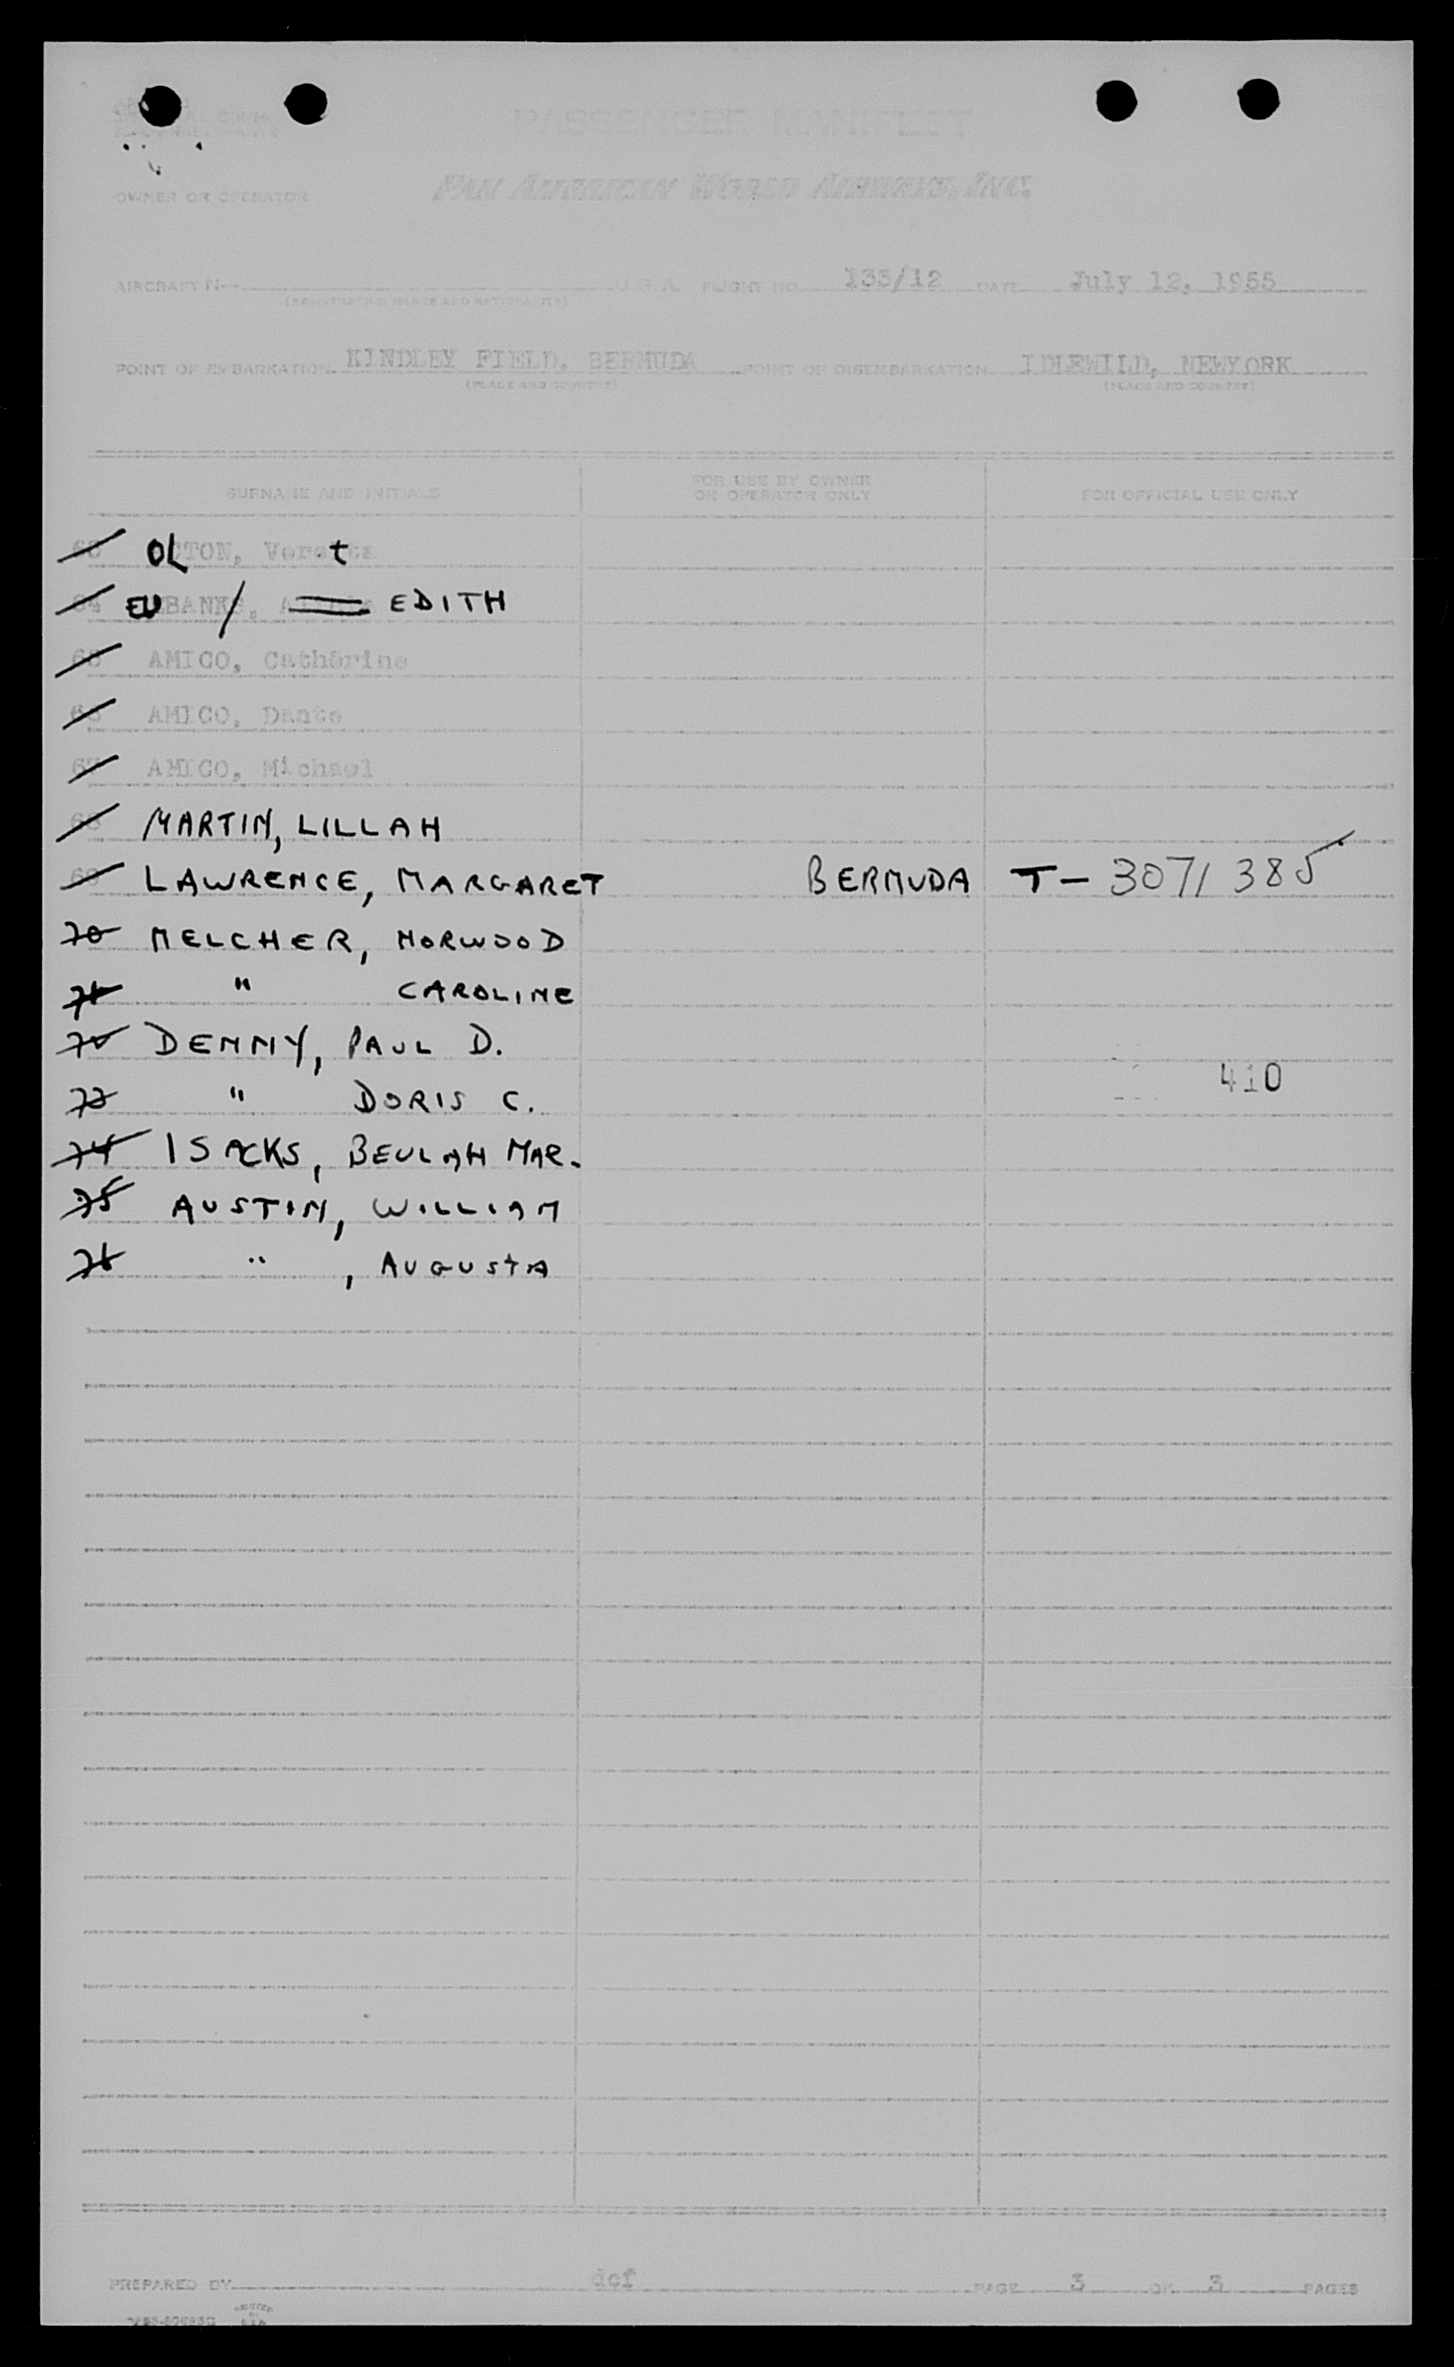 PASSENGER MANIFEST
OWNER OR OPERATOR PAN AMERICAN WORLD AIRWAYS, INC.
AIRCRAFT N- U.S.A. FLIGHT NO. 133/12 DATE July 12, 1955
(REGISTRATION MARKS AND NATIONALITY)
POINT OF EMBARKATION KINDLEY FIELD, BERMUDA POINT OF DISEMBARKATION IDLEWILD, NEWYORK
(PLACE AND COUNTRY) (PLACE AND COUNTRY)
SURNAME AND INITIALS FOR USE BY OWNER OR OPERATOR ONLY FOR OFFICIAL USE ONLY
63 OLTON,
64 EUBANKS, EDITH
65 AMICO, Catherine
66 AMICO, Dante
67 AMICO, Michael
68 MARTIN, LILLAH
69 LAWRENCE, MARGARET BERMUDA T-3071385
70 MELCHER, NORWOOD
71 " CAROLINE
72 DENNY, PAUL D.
410
73 " DORIS C.
74 ISACKS, BEULAH MAR.
75 AUSTIN, WILLIAM
76 " , AUGUSTA
PREPARED BY dcf PAGE 3 OF 3 PAGES